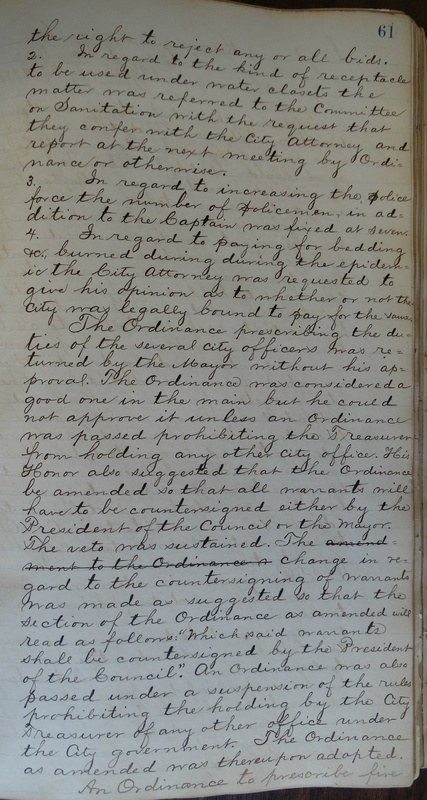 61
the right to reject any or all bids.
2. In regard to the kind of receptacle
to be used under water closets the
matter was referred to the Committee
on Sanitation with the request that
they confer with the City Attorney and
report at the next meeting by Ordi-
nance or otherwise.
3. In regard to increasing the police
force the number of policemen, in ad-
dition to the Captain was fixed at seven.
4. In regard to paying for bedding
&c, burned during during the epidem-
ic the City Attorney was requested to
give his opinion as to whether or not the
City was legally bound to pay for the same.
The Ordinance prescribing the du-
ties of the several city officers was re-
turned by the Mayor without his ap-
proval. The Ordinance was considered a
good one in the main but he could
not approve it unless an Ordinance
was passed prohibiting the Treasurer
from holding any other city office. His
Honor also suggested that the Ordinance
be amended so that all warrants will
have to be countersigned either by the
President of the Council or the Mayor.
The veto was sustained. The amend-
ment to the Ordinance change in re-
gard to the countersigning of warrants
was made as suggested so that the
section of the Ordinance as amended will
read as follows: "Which said warrants
shall be countersigned by the President
of the Council". An Ordinance was also
passed under a suspension of the rules
prohibiting the holding by the City
Treasurer of any other office under
the City government. The Ordinance
as amended was thereupon adopted.
An Ordinance to prescribe fire